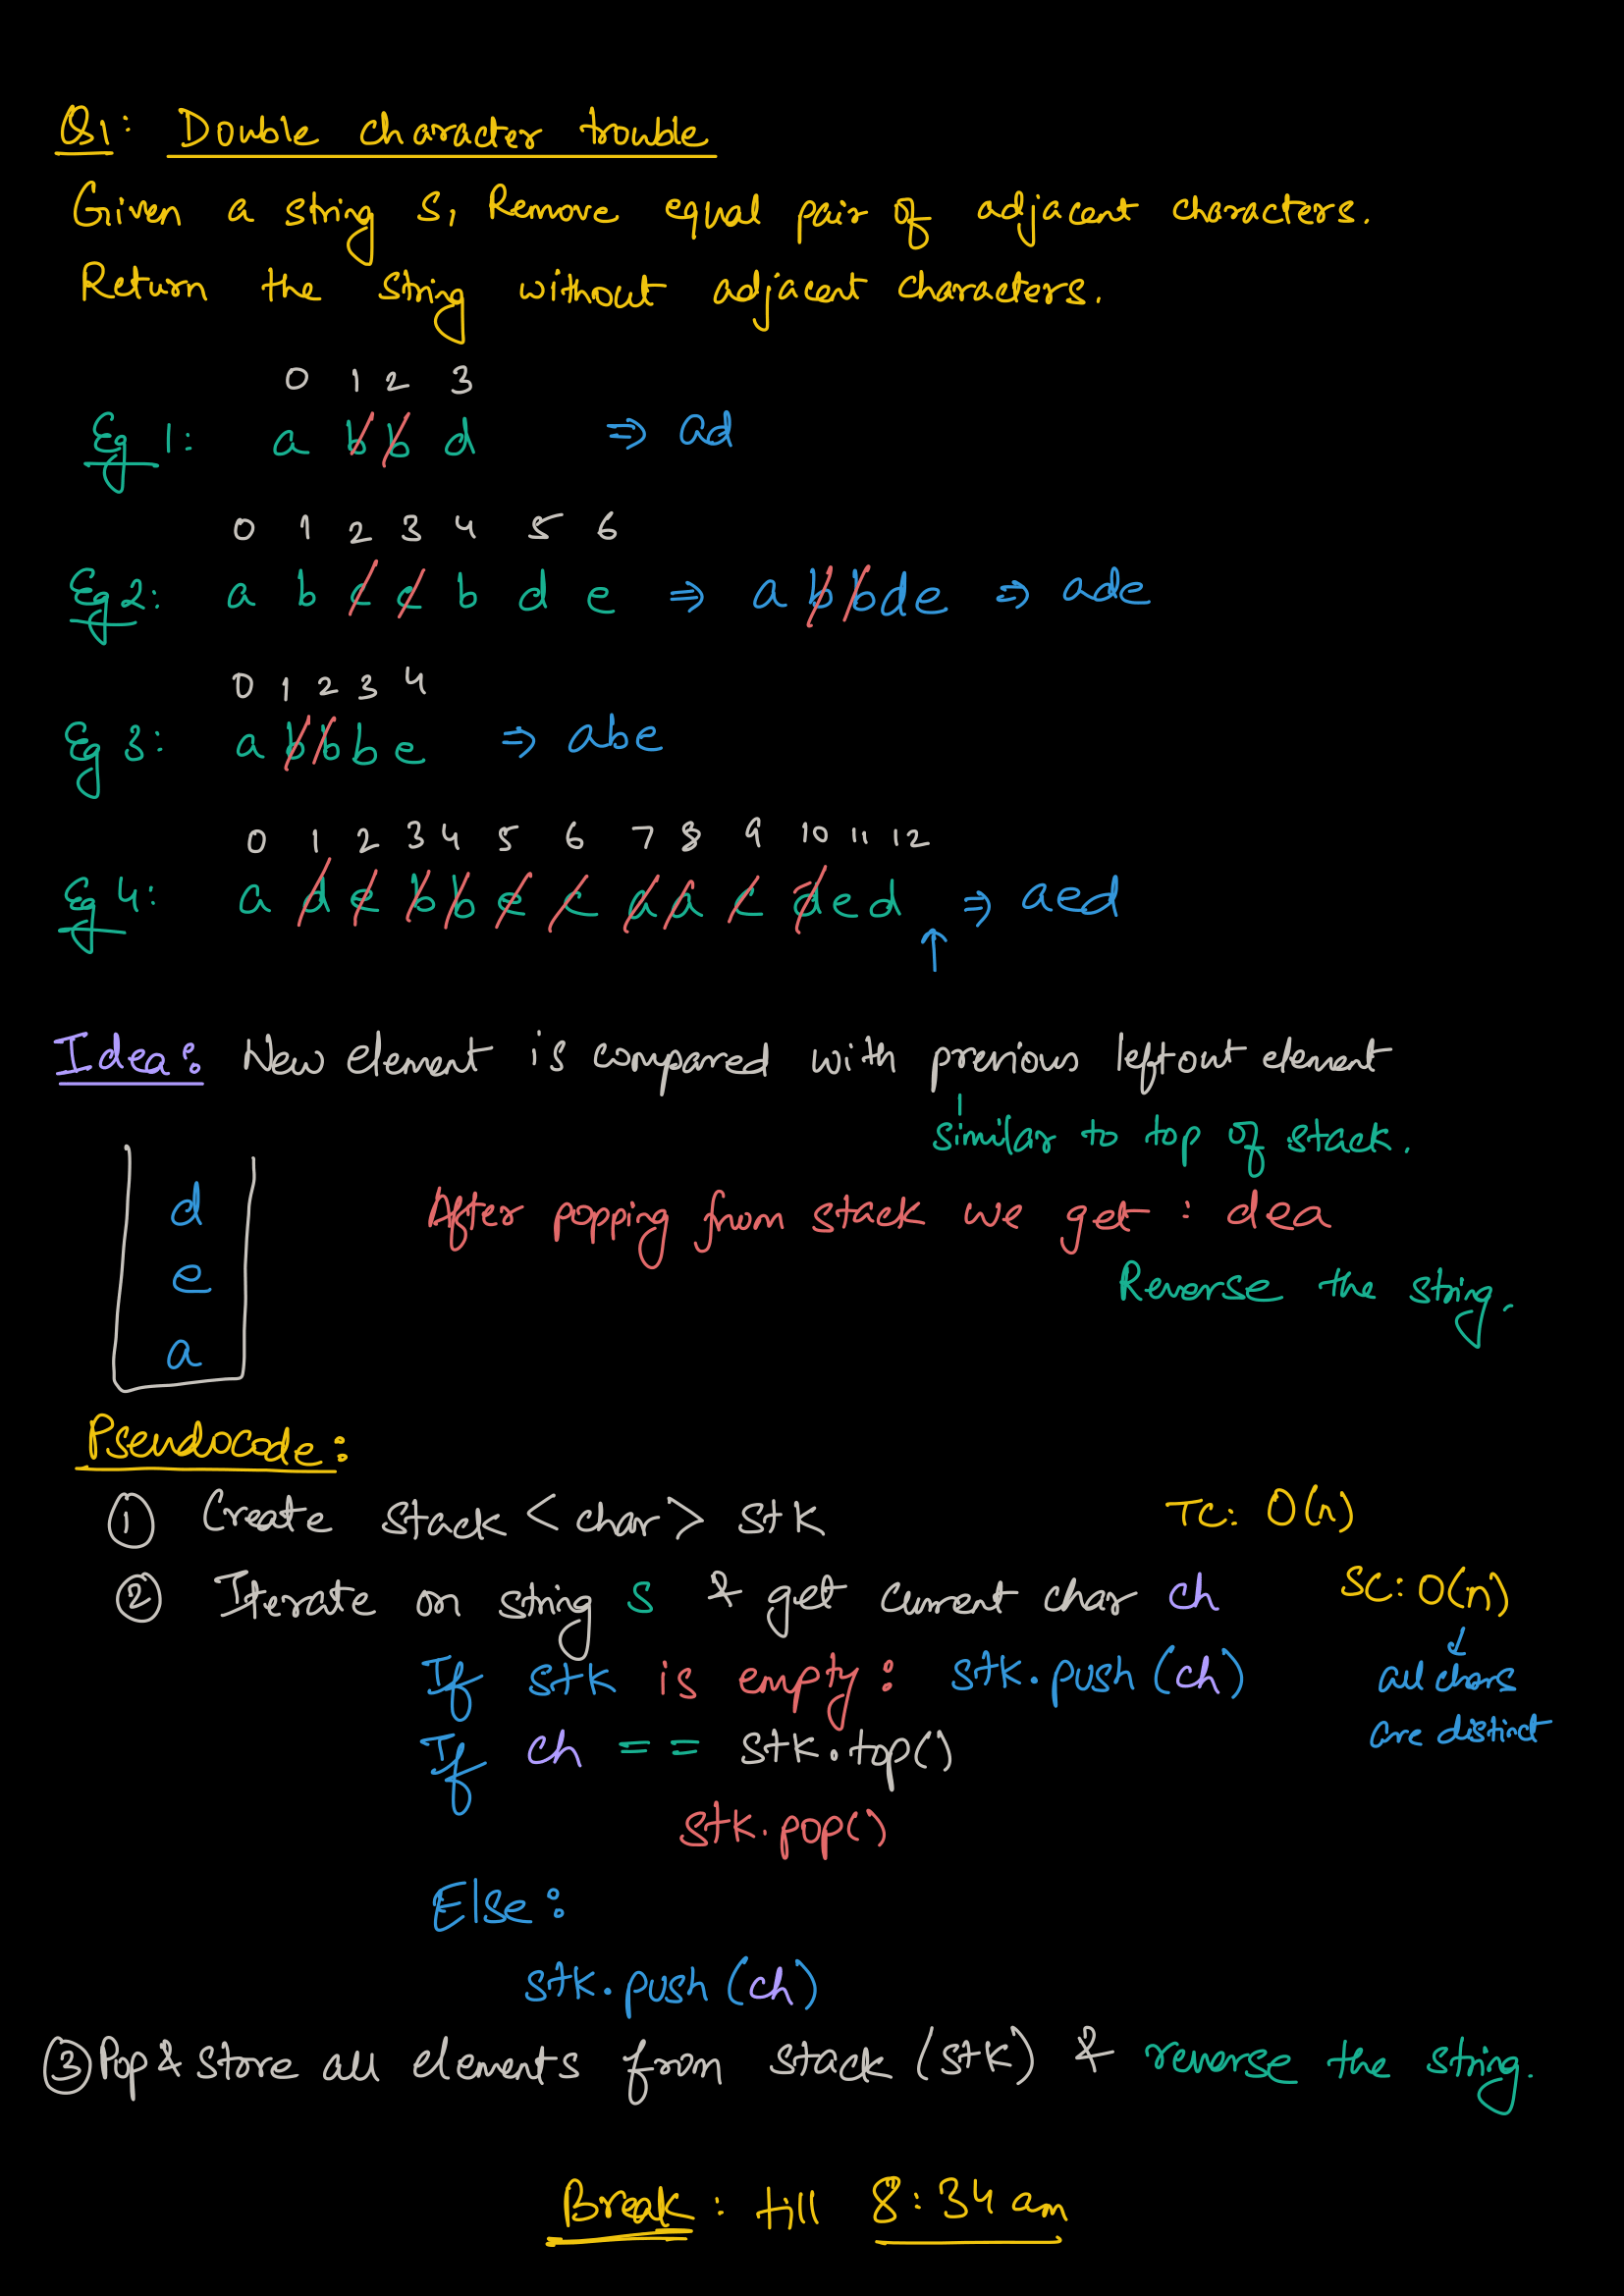 Q1: Double character trouble
Given a string s, Remove equal pair of adjacent characters.
Return the string without adjacent characters.
0 1 2 3
Eg 1: a b b d ⇒ ad
0 1 2 3 4 5 6
Eg 2: a b c c b d e ⇒ a b b d e ⇒ ade
0 1 2 3 4
Eg 3: a b b b e ⇒ abe
0 1 2 3 4 5 6 7 8 9 10 11 12
Eg 4: a d e b b e c a a c d e d ⇒ aed
↑
Idea: New element is compared with previous leftout element
similar to top of stack.
d
e
a
After popping from stack we get : dea
Reverse the string.
Pseudocode:
① Create stack <char> stk
TC: O(n)
② Iterate on string s & get current char ch
SC: O(n)
↓
all chars
are distinct
If stk is empty: stk.push(ch)
If ch == stk.top()
stk.pop()
Else:
stk.push(ch)
③ Pop & store all elements from stack (stk) & reverse the string.
Break: till 8:34 am